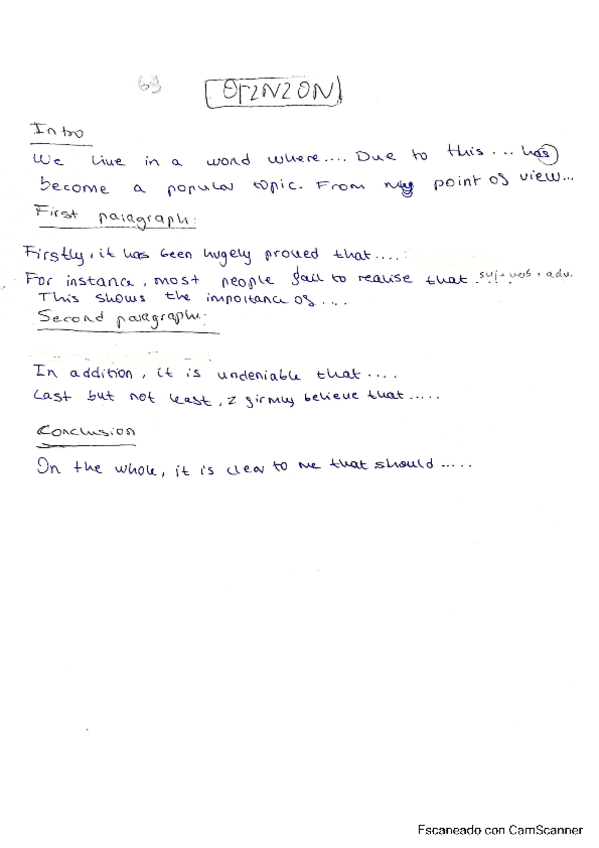 OPINION
Intro
We live in a word where.... Due to this... has
become a popular topic. From my point of view...
First paragraph:
Firstly, it has been hugely proved that....:
For instance, most people fail to realise that .... suj + verb + adv.
This shows the importance of ....
Second paragraph:
In addition, it is undeniable that....
Last but not least, I firmly believe that.....
Conclusion
On the whole, it is clear to me that should.....
Escaneado con CamScanner